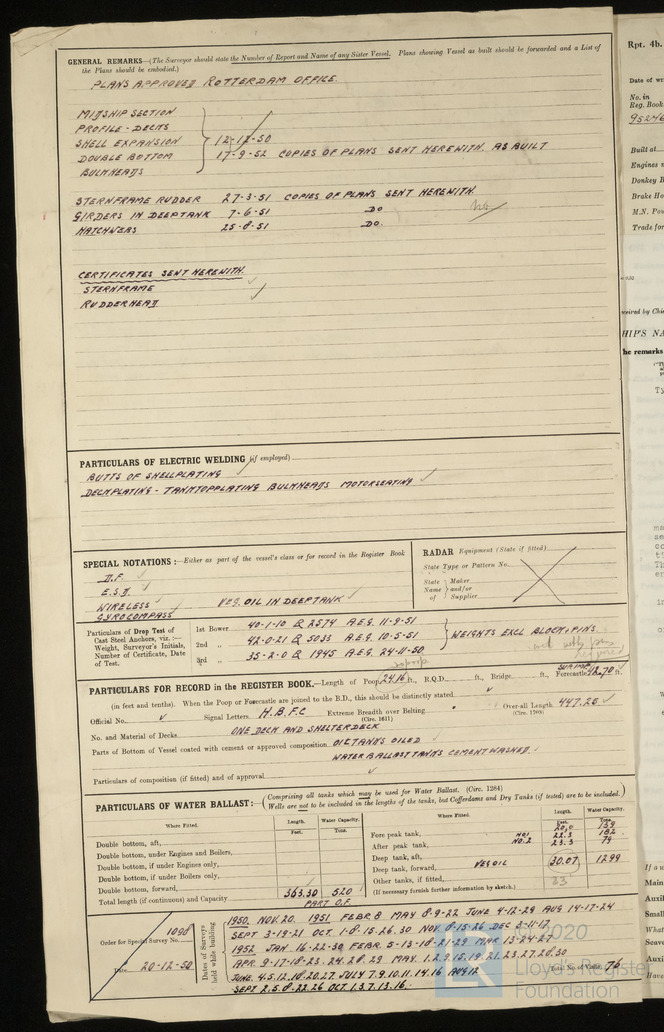 GENERAL REMARKS—(The Surveyor should state the Number of Report and Name of any Sister Vessel. Plans showing Vessel as built should be forwarded and a List of
the Plans should be embodied.)
PLANS APPROVED ROTTERDAM OFFICE.
MIDSHIP SECTION
PROFILE - DECKS
SHELL EXPANSION 12-12-50
DOUBLE BOTTOM 17-9-52 COPIES OF PLANS SENT HEREWITH. AS BUILT
BULKHEADS
STERNFRAME RUDDER 27-3-51 COPIES OF PLANS SENT HEREWITH.
GIRDERS IN DEEPTANK 7-6-51 DO
HATCHWEBS 25-8-51 DO.
CERTIFICATES SENT HEREWITH.
STERNFRAME
RUDDERHEAD
PARTICULARS OF ELECTRIC WELDING (if employed)
BUTTS OF SHELLPLATING
DECKPLATING - TANKTOPPLATING BULKHEADS MOTORSEATING
SPECIAL NOTATIONS:—Either as part of the vessel's class or for record in the Register Book
D.F.
E.S.D.
WIRELESS VEG. OIL IN DEEPTANK
GYROCOMPASS
RADAR Equipment (State if fitted)
State Type or Pattern No.
State Name of Maker and/or Supplier
Particulars of Drop Test of Cast Steel Anchors, viz.:— Weight, Surveyor's Initials, Number of Certificate, Date of Test.
1st Bower 40-1-10 & 2574 A.E.G. 11-9-51
2nd „ 42-0-21 & 5033 A.E.G. 10-5-51 WEIGHTS EXCL BLOCK & PINS.
3rd „ 35-2-0 & 1945 A.E.G. 24-11-50
PARTICULARS FOR RECORD in the REGISTER BOOK.—Length of Poop 24.16 ft., R.Q.D. ft., Bridge ft., Forecastle 42.70 ft.
(in feet and tenths). When the Poop or Forecastle are joined to the B.D., this should be distinctly stated
Official No. Signal Letters H.B.F.C Extreme Breadth over Belting (Circ. 1611) Over-all Length (Circ. 1703) 447.25
No. and Material of Decks ONE DECK AND SHELTERDECK
Parts of Bottom of Vessel coated with cement or approved composition OILTANKS OILED
WATER BALLAST TANKS CEMENT WASHED
Particulars of composition (if fitted) and of approval
PARTICULARS OF WATER BALLAST:—(Comprising all tanks which may be used for Water Ballast. (Circ. 1284)
Wells are not to be included in the lengths of the tanks, but Cofferdams and Dry Tanks (if tested) are to be included.)
Where Fitted. Length. Feet. Water Capacity. Tons. Where Fitted. Length. Feet. Water Capacity. Tons.
Double bottom, aft,
Double bottom, under Engines and Boilers,
Double bottom, if under Engines only,
Double bottom, if under Boilers only,
Double bottom, forward,
Total length (if continuous) and Capacity 363.30 520
PART O.F.
Fore peak tank, 20,0 139
After peak tank, NO1 22.3 182
NO.2 23.3 79
Deep tank, aft,
Deep tank, forward, VEG OIL 30.07 1299
Other tanks, if fitted,
(If necessary furnish further information by sketch.)
Order for Special Survey No. 1098
Date 20-12-50
Dates of Surveys held while building
1950. NOV. 20. 1951 FEBR 8 MAY 8-9-22 JUNE 4-12-29 AUG 14-17-24
SEPT 3-19-21 OCT 1-8-15-26.30 NOV. 8-15-26 DEC 3-11-17
1952 JAN 16-22-30 FEBR. 5-13-18-21-29 MAR 13-24-27
APR. 9-17-18-23. 24.28.29 MAY. 1.2.9.15.19.21.23.27.28.30
JUNE. 4.5.12.18.20.27. JULY 7.9.10.11.14.16 AUG 12
SEPT 2.5.8.22.26 OCT 1.3.7.13.16.
Total No. of Visits 76
© 2020
Lloyd's Register
Foundation
Rpt. 4b.
Reg. Book
Built at
Donkey B
M.N. Po
Trade for